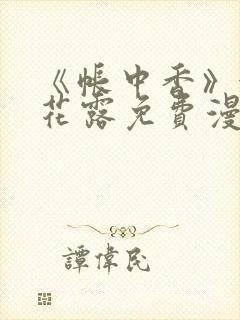 《帐中香》
花露免費漫
譚偉民